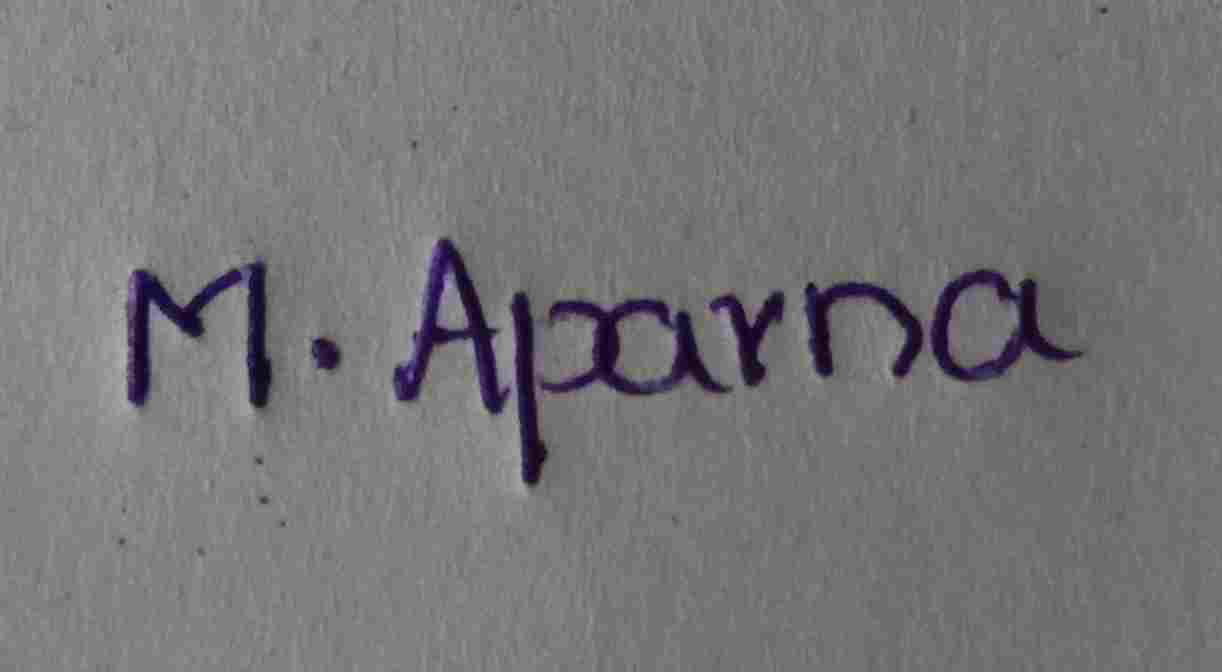 M. Aparna